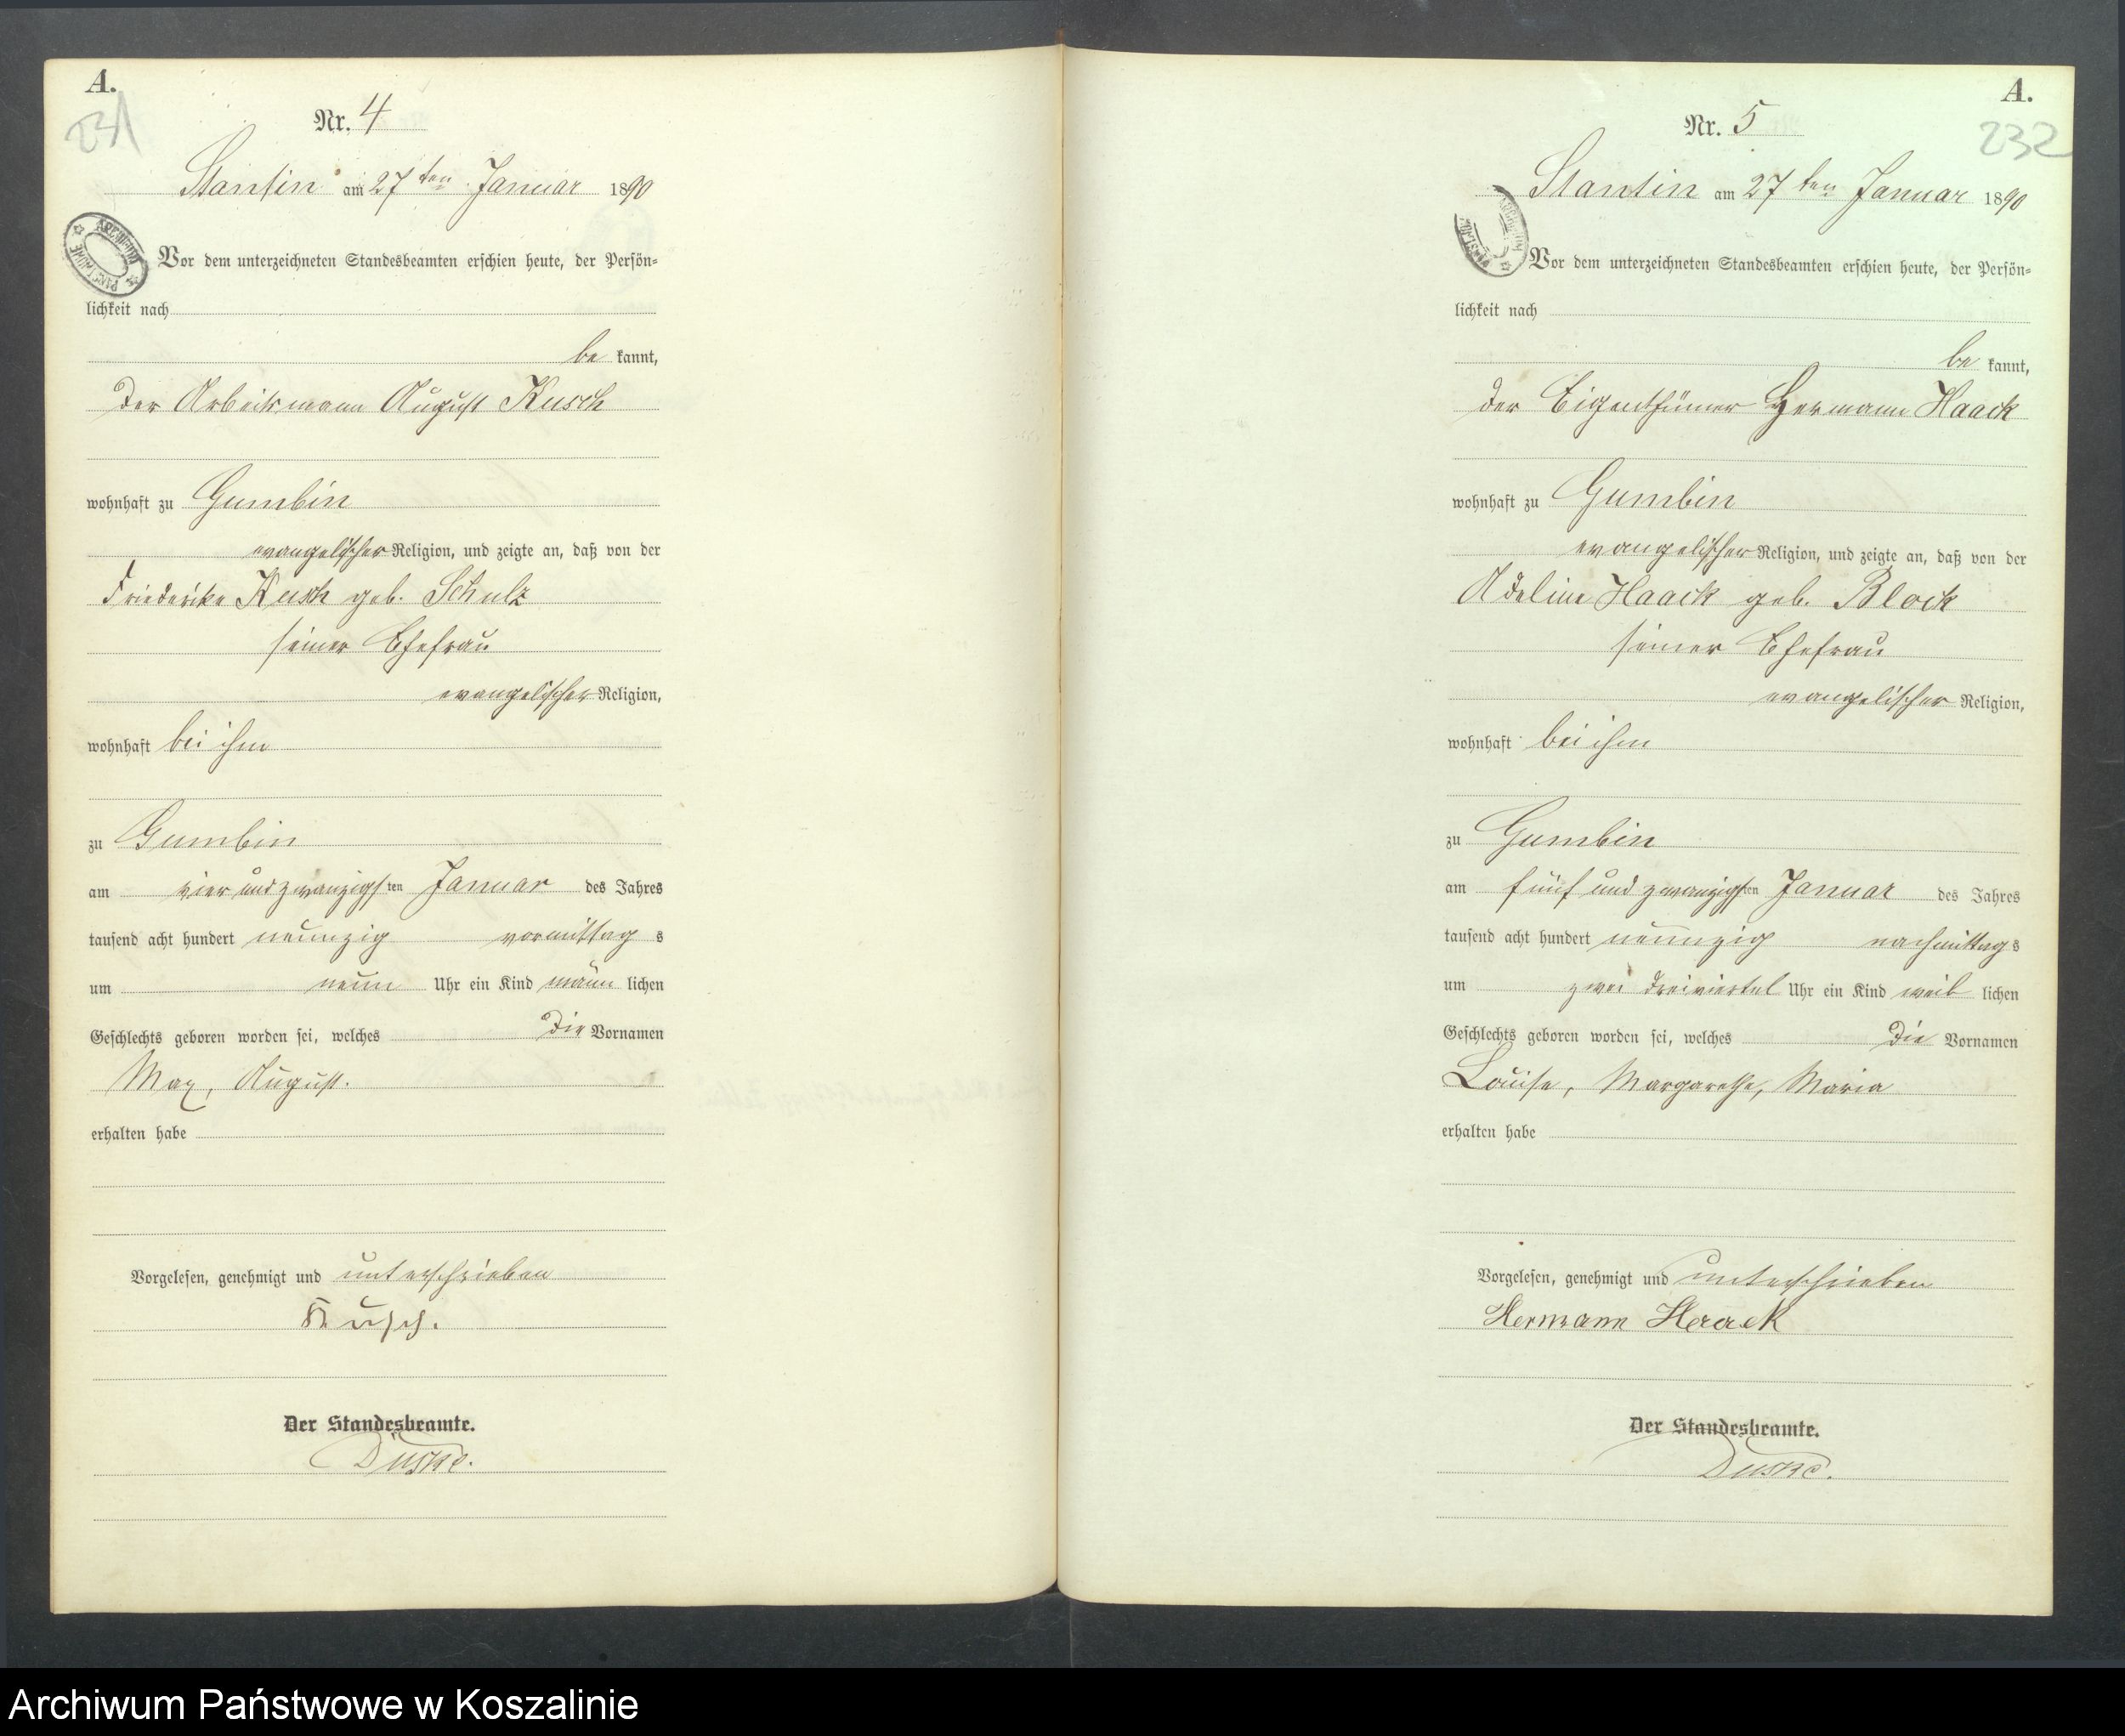 A.
231
Nr. 4
Stantin am 27ten Januar 1890
Vor dem unterzeichneten Standesbeamten erschien heute, der Persön-
lichkeit nach
be kannt,
der Arbeitsmann August Kusch
wohnhaft zu Gumbin
evangelischer Religion, und zeigte an, daß von der
Friederike Kusch geb. Schulz
seiner Ehefrau
evangelischer Religion,
wohnhaft bei ihm
zu Gumbin
am vier und zwanzigsten Januar des Jahres
tausend acht hundert neunzig vormittags
um neun Uhr ein Kind männlichen
Geschlechts geboren worden sei, welches die Vornamen
Max, August.
erhalten habe
Vorgelesen, genehmigt und unterschrieben
Kusch.
Der Standesbeamte.
A.
232
Nr. 5
Stantin am 27ten Januar 1890
Vor dem unterzeichneten Standesbeamten erschien heute, der Persön-
lichkeit nach
be kannt,
der Eigenthümer Hermann Haack
wohnhaft zu Gumbin
evangelischer Religion, und zeigte an, daß von der
Adeline Haack geb. Block
seiner Ehefrau
evangelischer Religion,
wohnhaft bei ihm
zu Gumbin
am fünf und zwanzigsten Januar des Jahres
tausend acht hundert neunzig nachmittags
um zwei dreiviertel Uhr ein Kind weiblichen
Geschlechts geboren worden sei, welches die Vornamen
Louise, Margarethe, Maria
erhalten habe
Vorgelesen, genehmigt und unterschrieben
Hermann Haack
Der Standesbeamte.
Archiwum Państwowe w Koszalinie